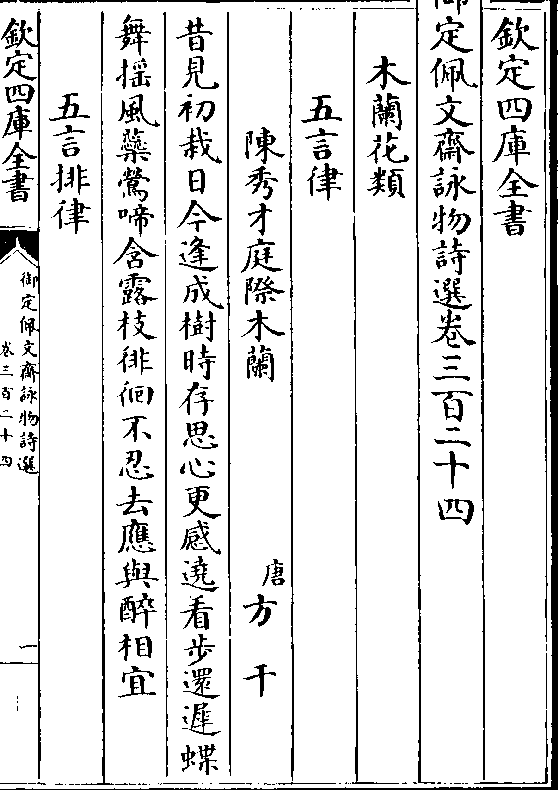 欽定四庫全書
御定佩文齋詠物詩選卷三百二十四
木蘭花類
五言律
陳秀才庭際木蘭 唐 方干
昔見初栽日今逢成樹時存思心更感遶看步還遲蝶
舞揺風蘂鶯啼含露枝徘徊不忍去應與醉相宜
五言排律
欽定四庫全書
御定佩文齋詠物詩選
卷三百二十四
一